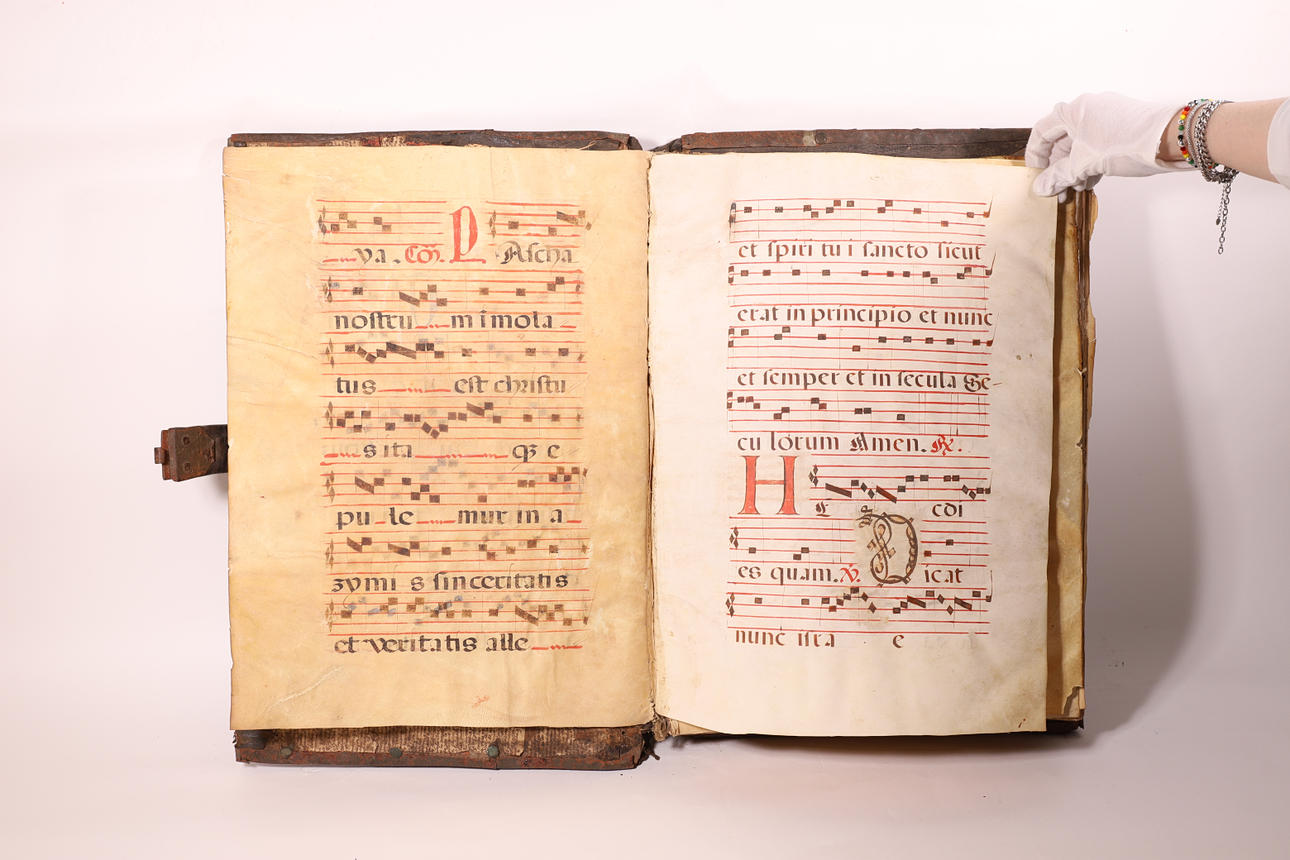 va. Cõ. PAscha
nostru m imola
tus est christu
s ita qȝ e
pu le mur in a
zymi s sinceritatis
et veritatis alle
et spiri tu i sancto sicut
erat in principio et nunc
et semper et in secula Se-
cu lorum Amen. ℟.
H E c di
es quam. ℣. D icat
nunc isra e